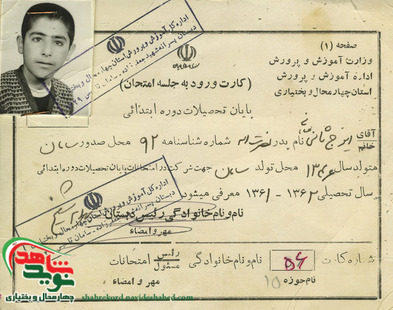 صفحه (۱)
وزارت آموزش و پرورش
اداره آموزش و پرورش
استان چهارمحال و بختیاری
(کارت ورود به جلسه امتحان)
پایان تحصیلات دوره ابتدائی
آقای
خانم
نام پدر
شماره شناسنامه ۹۲ محل صدور سامان
متولد سال ۱۳۴۶ محل تولد سامان جهت شرکت در امتحانات پایان تحصیلات دوره ابتدائی
سال تحصیلی ۱۳۶۲ - ۱۳۶۱ معرفی میشود
نام و نام خانوادگی رئیس دبستان
مهر و امضاء
شماره کارت ۵۴ نام و نام خانوادگی رئیس مسئول امتحانات
نام حوزه مهر و امضاء
اداره کل آموزش و پرورش استان چهارمحال و بختیاری
اداره کل آموزش و پرورش استان چهارمحال و بختیاری
نوید شاهد
چهارمحال و بختیاری
shahrekord.navideshahed.com